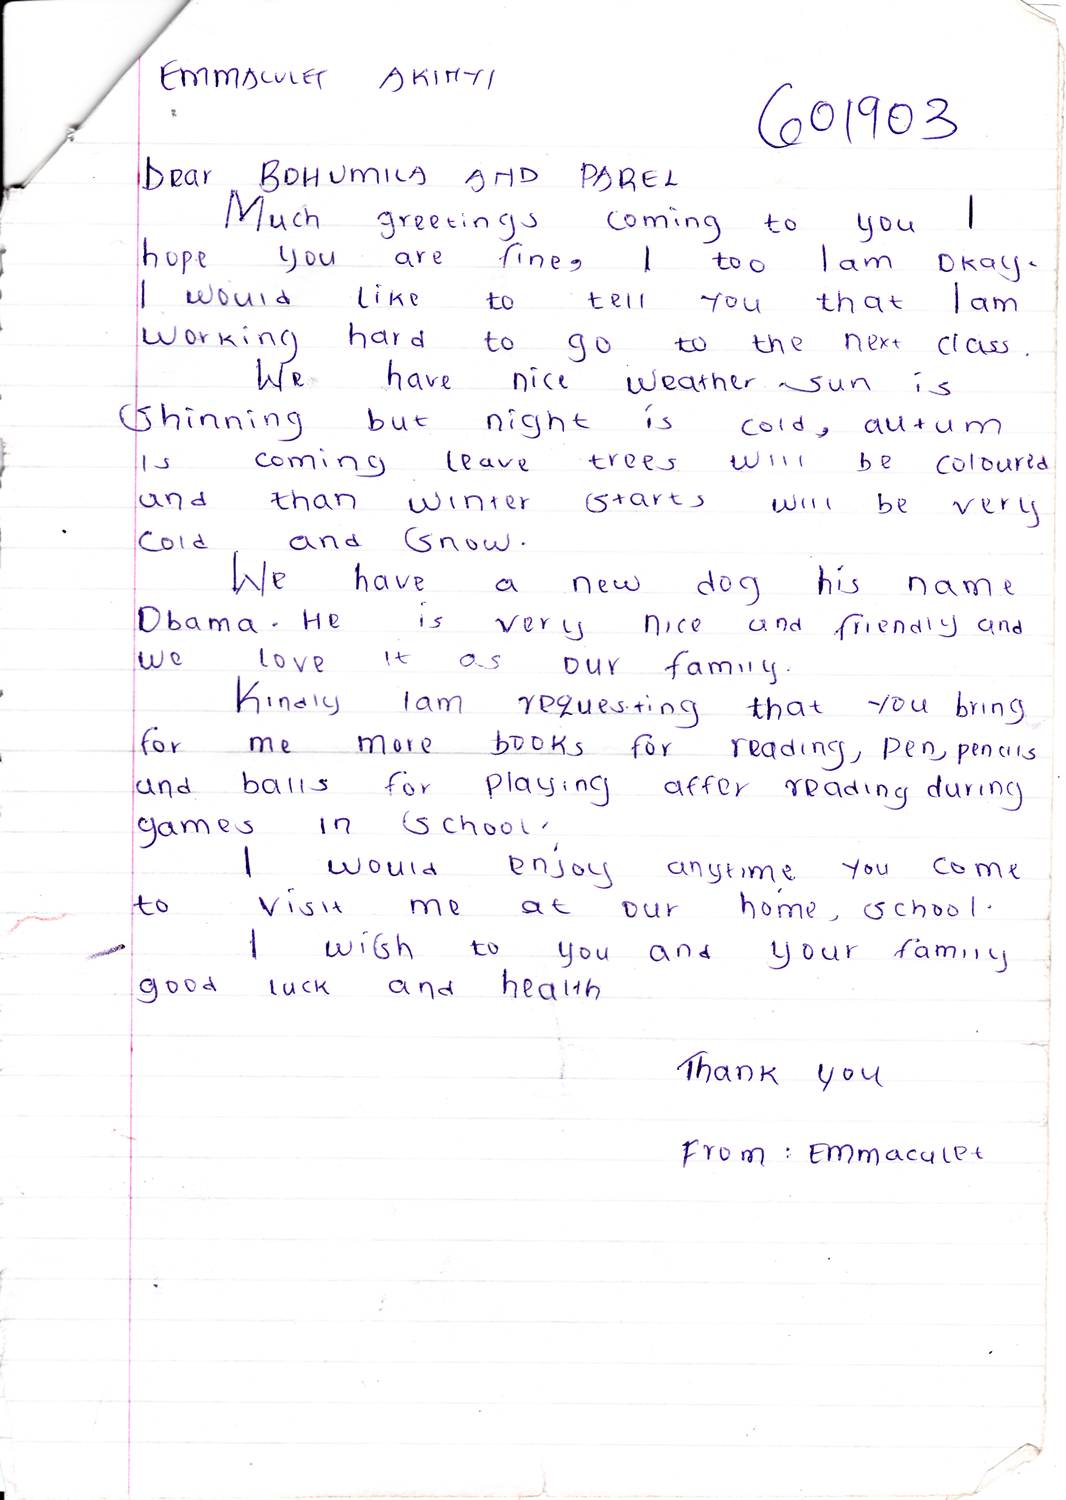 EMMACULET AKINYI
601903
Dear BOHUMILA AND PAREL
Much greetings coming to you I
hope you are fine, I too Iam Okay.
I would like to tell you that Iam
working hard to go to the next class.
We have nice weather sun is
Shinning but night is cold, autum
is coming leave trees will be coloured
and than winter starts will be very
cold and snow.
We have a new dog his name
Obama. He is very nice and friendly and
we love it as our family.
Kindly Iam requesting that you bring
for me more books for reading, pen, pencils
and balls for playing affer reading during
games in school.
I would enjoy anytime you come
to visit me at our home, school.
I wish to you and your family
good luck and health
Thank you
From: Emmaculet